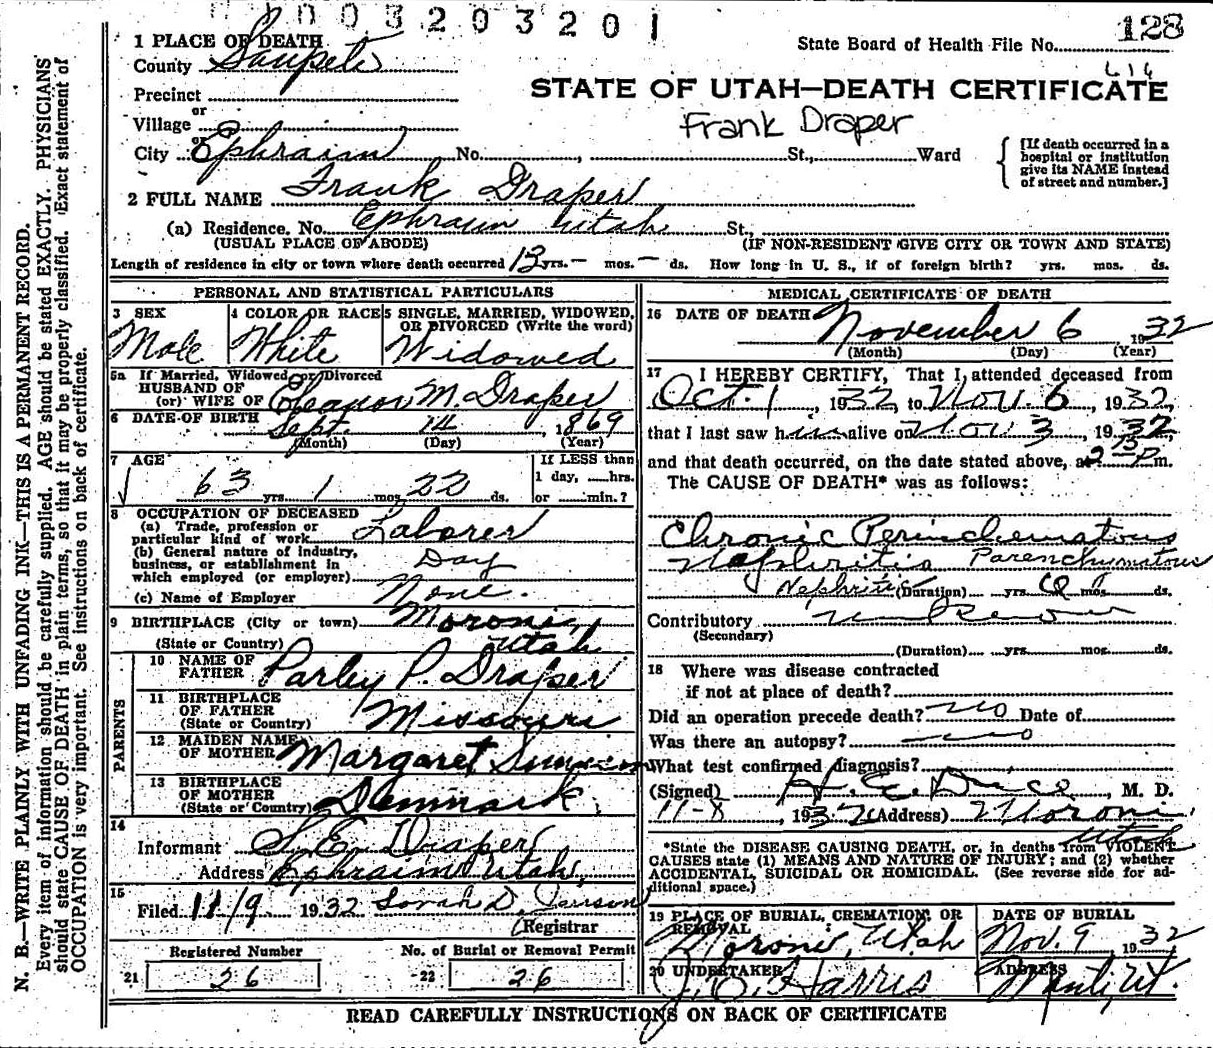 003203201
128
State Board of Health File No.
614
1 PLACE OF DEATH
County Sanpete
STATE OF UTAH—DEATH CERTIFICATE
Precinct
or
Village
Frank Draper
or
City Ephraim No. , St., Ward
[If death occurred in a hospital or institution give its NAME instead of street and number.]
2 FULL NAME Frank Draper
(a) Residence. No. Ephraim Utah St.,
(USUAL PLACE OF ABODE) (IF NON-RESIDENT GIVE CITY OR TOWN AND STATE)
Length of residence in city or town where death occurred 13 yrs. — mos. — ds. How long in U. S., if of foreign birth? yrs. mos. ds.
PERSONAL AND STATISTICAL PARTICULARS
3 SEX
Male
4 COLOR OR RACE
White
5 SINGLE, MARRIED, WIDOWED, OR DIVORCED (Write the word)
Widowed
5a If Married, Widowed or Divorced
HUSBAND OF
(or) WIFE OF Eleanor M. Draper
6 DATE OF BIRTH Sept 14, 1869
(Month) (Day) (Year)
7 AGE
63 yrs. 1 mos. 22 ds.
If LESS than
1 day, hrs.
or min.?
8 OCCUPATION OF DECEASED
(a) Trade, profession or
particular kind of work Laborer
(b) General nature of industry,
business, or establishment in
which employed (or employer) Day
(c) Name of Employer None.
9 BIRTHPLACE (City or town) Moroni,
(State or Country) Utah
PARENTS
10 NAME OF
FATHER Parley P. Draper
11 BIRTHPLACE
OF FATHER
(State or Country) Missouri
12 MAIDEN NAME
OF MOTHER Margaret
13 BIRTHPLACE
OF MOTHER
(State or Country) Denmark
14
Informant S. E. Draper
Address Ephraim Utah,
15
Filed 11/9 1932 Sarah D.
Registrar
Registered Number
21 26
No. of Burial or Removal Permit
22 26
MEDICAL CERTIFICATE OF DEATH
16 DATE OF DEATH November 6 1932
(Month) (Day) (Year)
17 I HEREBY CERTIFY, That I attended deceased from
Oct. 1, 1932, to Nov. 6, 1932,
that I last saw him alive on Nov 3, 1932,
and that death occurred, on the date stated above, at 2 P m.
The CAUSE OF DEATH* was as follows:
Chronic Perinchematous
Nephritis Parenchumatous
Nephritis (Duration) yrs. 6 mos. ds.
Contributory
(Secondary)
(Duration) yrs. mos. ds.
18 Where was disease contracted
if not at place of death?
Did an operation precede death? no Date of
Was there an autopsy? no
What test confirmed diagnosis?
(Signed) , M. D.
11-8, 1932 (Address) Moroni
Utah
*State the DISEASE CAUSING DEATH, or, in deaths from VIOLENT
CAUSES state (1) MEANS AND NATURE OF INJURY; and (2) whether
ACCIDENTAL, SUICIDAL OR HOMICIDAL. (See reverse side for ad-
ditional space.)
19 PLACE OF BURIAL, CREMATION, OR
REMOVAL
Moroni, Utah
DATE OF BURIAL
Nov. 9 1932
20 UNDERTAKER
Harris
ADDRESS
Manti, Ut.
READ CAREFULLY INSTRUCTIONS ON BACK OF CERTIFICATE
N. B.—WRITE PLAINLY WITH UNFADING INK—THIS IS A PERMANENT RECORD.
Every item of information should be carefully supplied. AGE should be stated EXACTLY. PHYSICIANS
should state CAUSE OF DEATH in plain terms, so that it may be properly classified. Exact statement of
OCCUPATION is very important. See instructions on back of certificate.